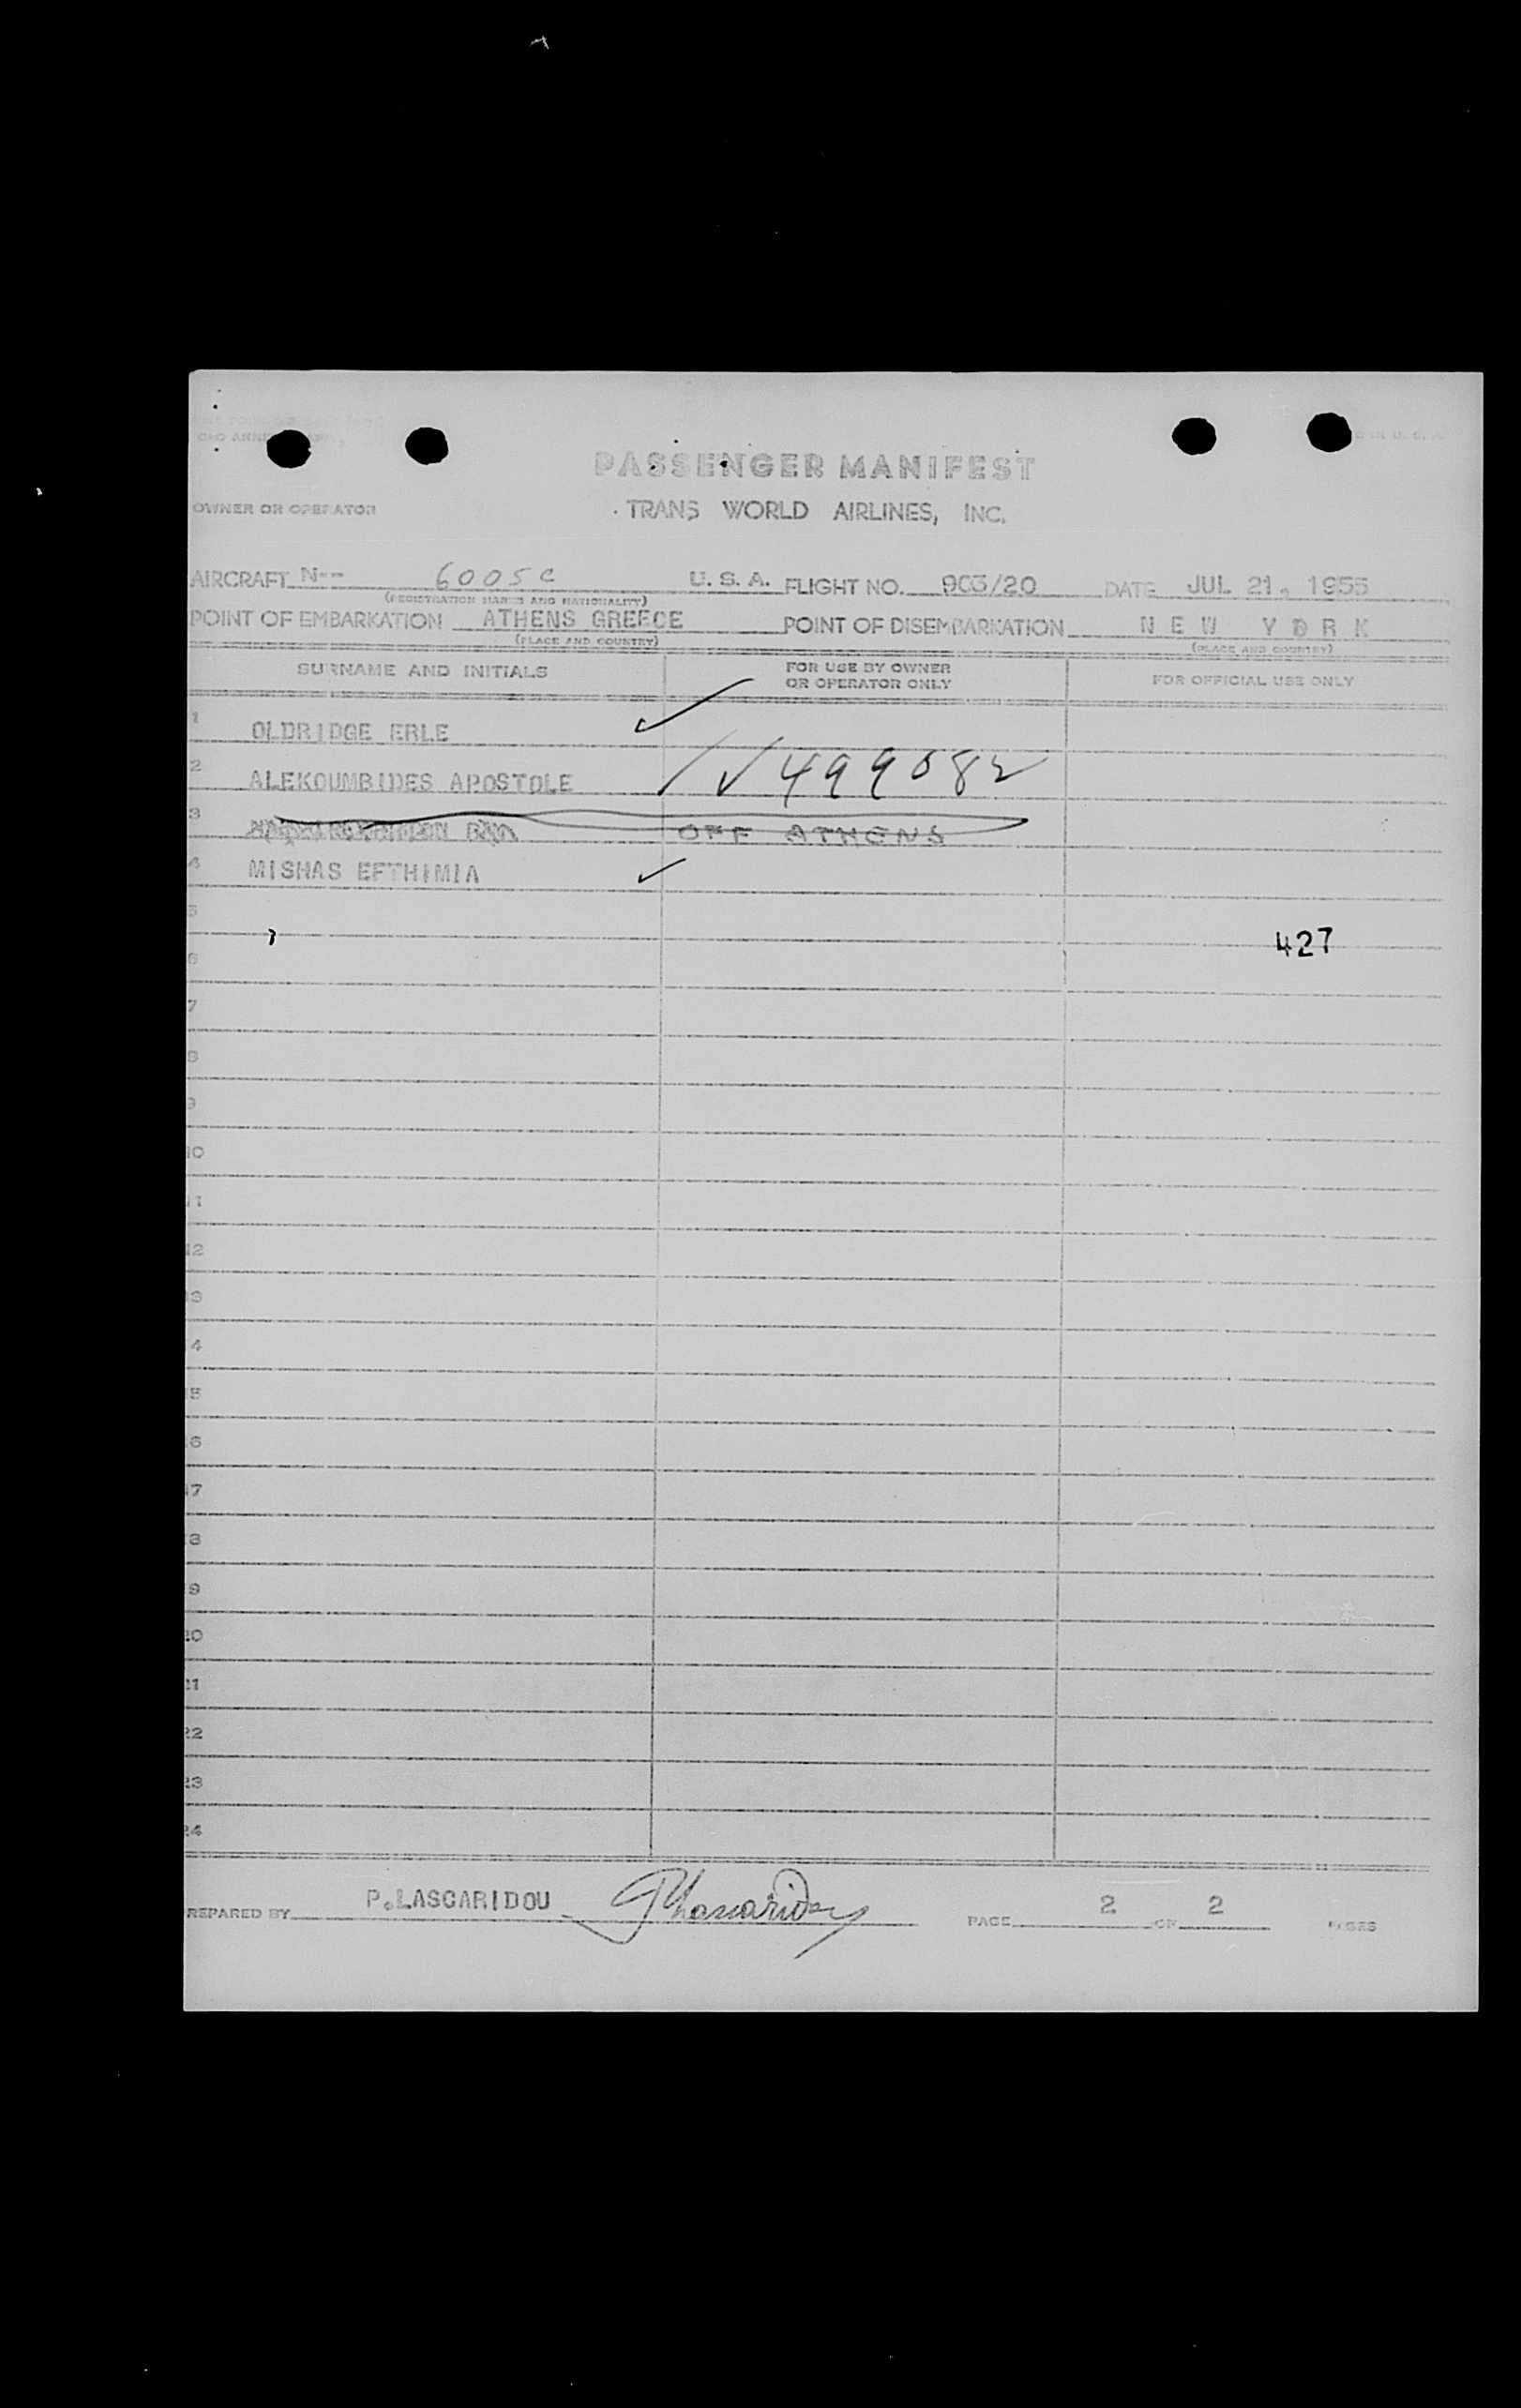 PASSENGER MANIFEST
OWNER OR OPERATOR TRANS WORLD AIRLINES, INC.
AIRCRAFT N-- 6005C U. S. A. FLIGHT NO. 903/20 DATE JUL 21, 1955
(REGISTRATION MARKS AND NATIONALITY)
POINT OF EMBARKATION ATHENS GREECE POINT OF DISEMBARKATION N E W Y O R K
(PLACE AND COUNTRY) (PLACE AND COUNTRY)
SURNAME AND INITIALS FOR USE BY OWNER OR OPERATOR ONLY FOR OFFICIAL USE ONLY
1 OLDRIDGE ERLE ✓
2 ALEKOUMBIDES APOSTOLE /✓ 499082
3 OFF ATHENS
4 MISHAS EFTHIMIA ✓
5
427
6
7
8
9
10
11
12
13
14
15
16
17
18
19
20
21
22
23
24
PREPARED BY P.LASCARIDOU PLascaridou PAGE 2 OF 2 PAGES